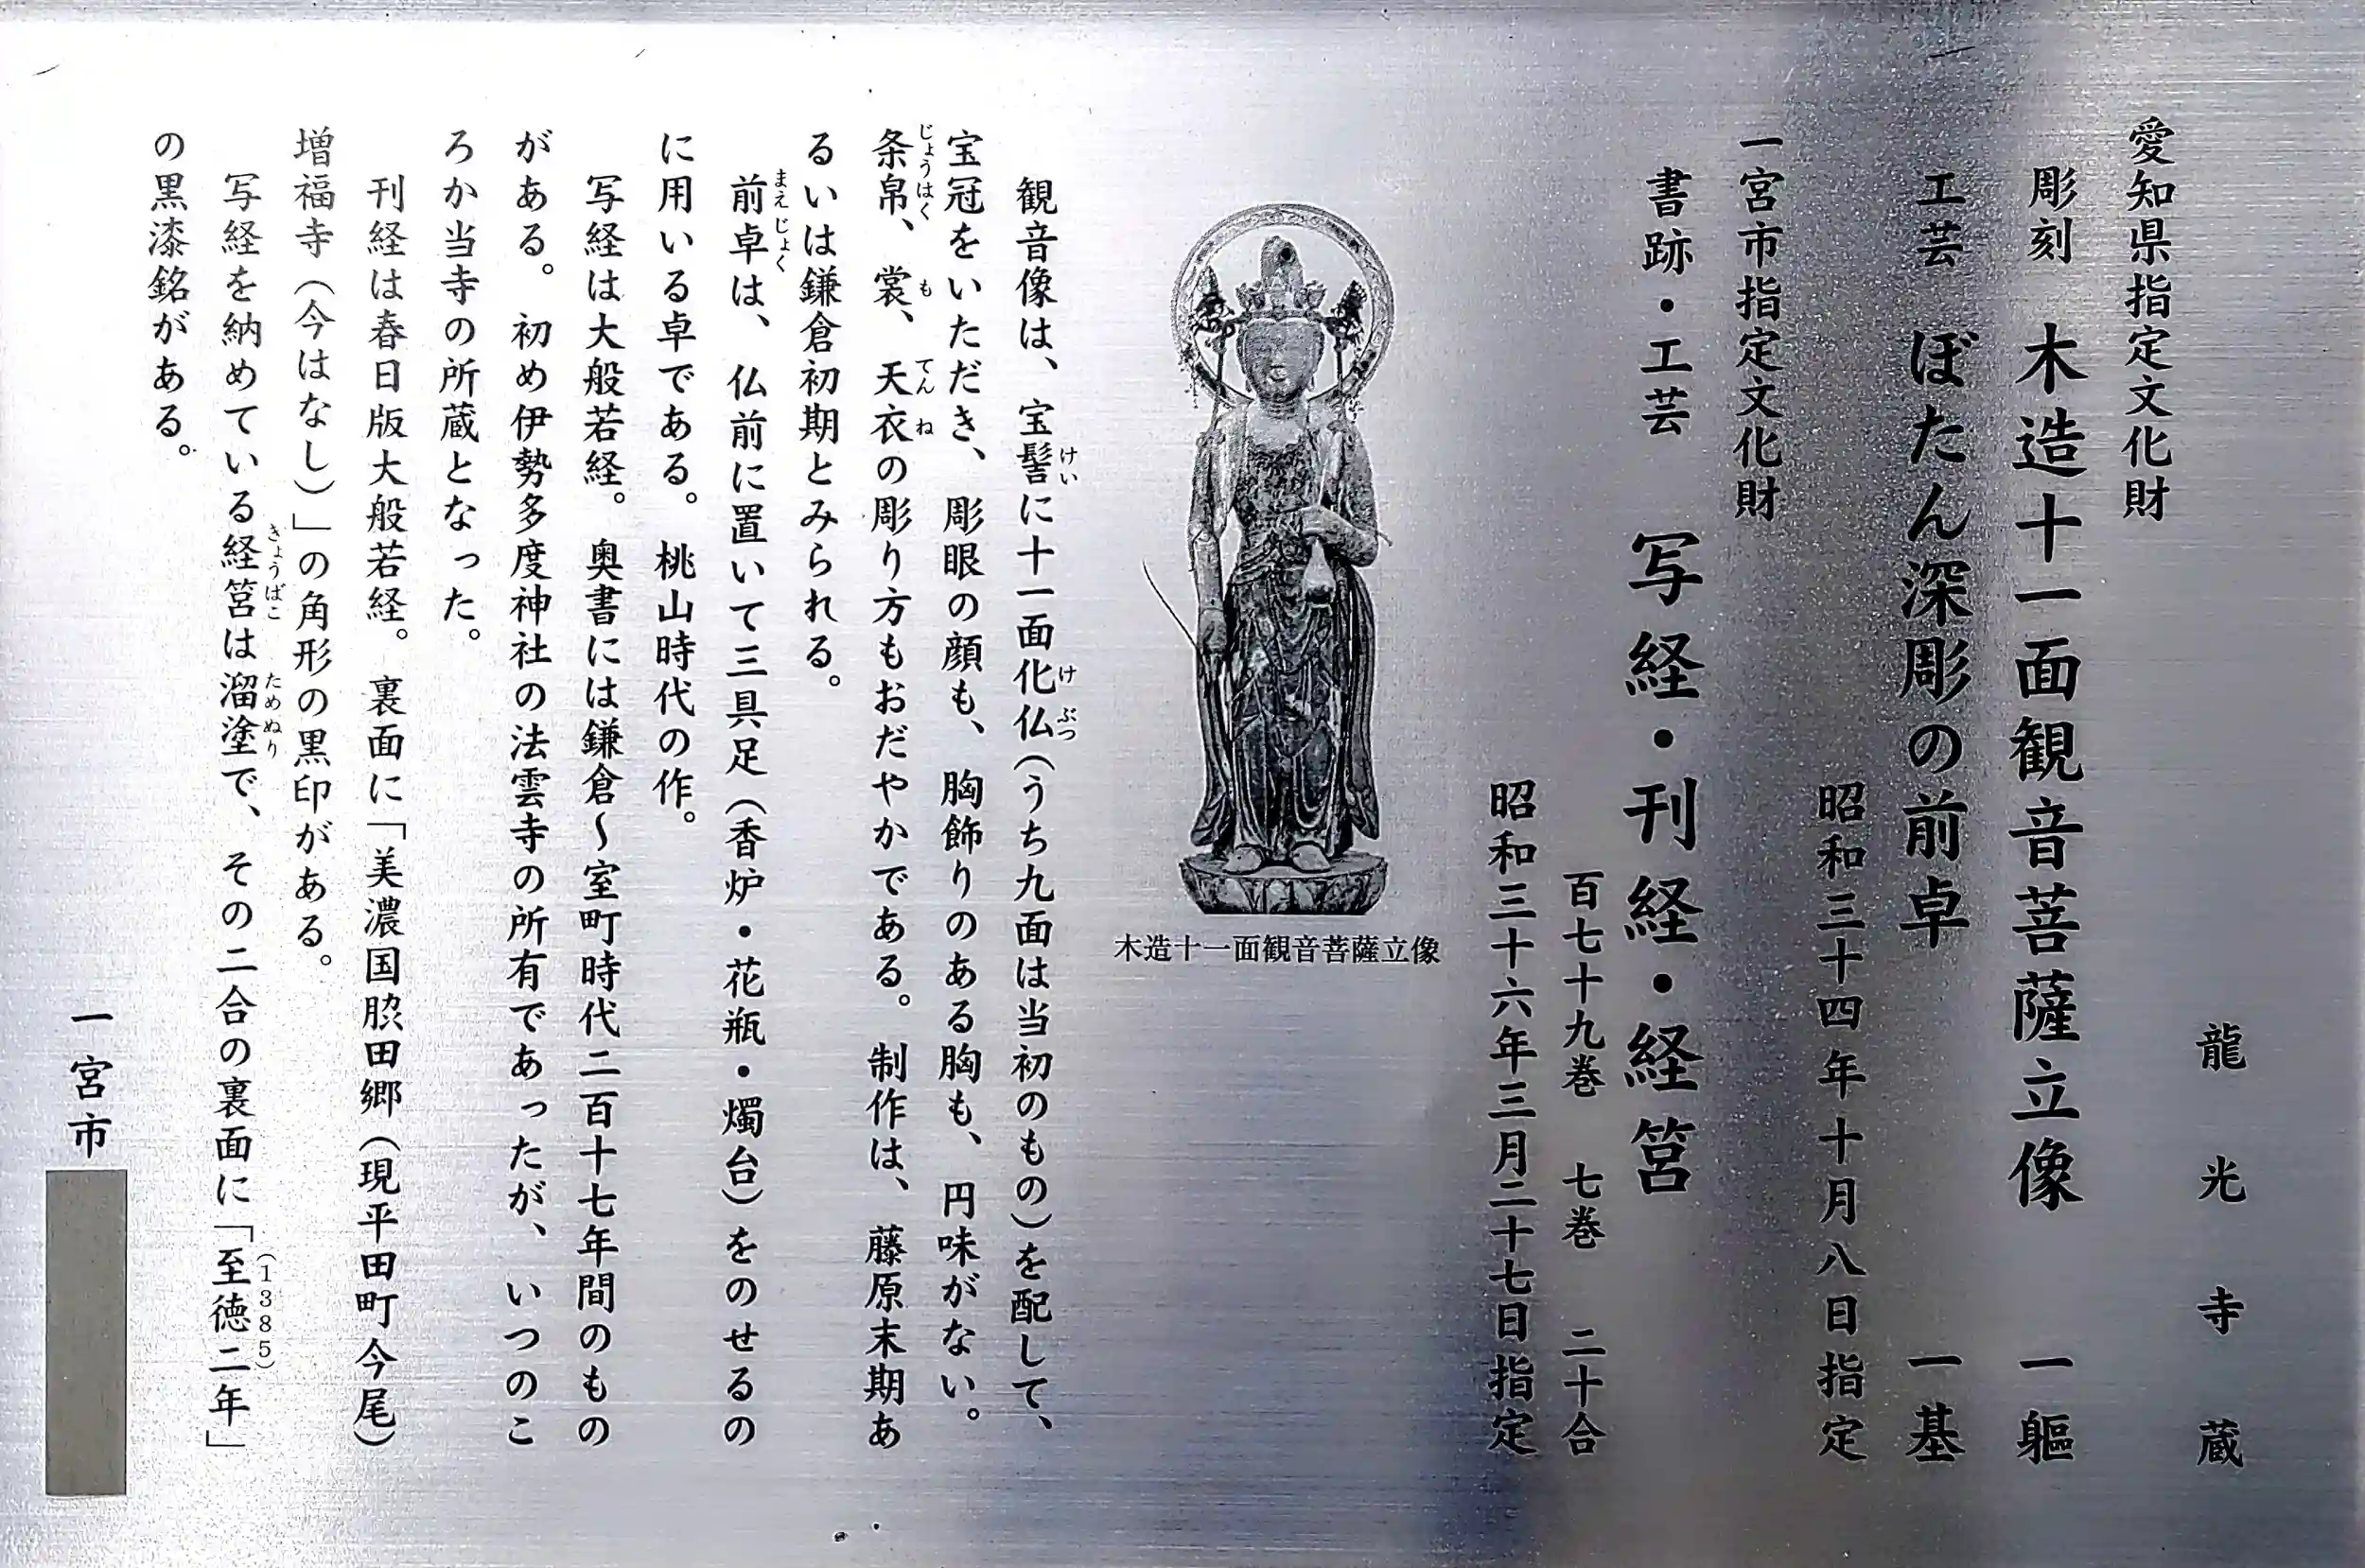 龍光寺蔵
愛知県指定文化財
彫刻　木造十一面観音菩薩立像　一軀
工芸　ぼたん深彫の前卓　一基
昭和三十四年十月八日指定
一宮市指定文化財
書跡・工芸　写経・刊経・経筥
百七十九巻　七巻　二十合
昭和三十六年三月二十七日指定
木造十一面観音菩薩立像
観音像は、宝髻に十一面化仏（うち九面は当初のもの）を配して、
宝冠をいただき、彫眼の顔も、胸飾りのある胸も、円味がない。
条帛、裳、天衣の彫り方もおだやかである。制作は、藤原末期あ
るいは鎌倉初期とみられる。
前卓は、仏前に置いて三具足（香炉・花瓶・燭台）をのせるの
に用いる卓である。桃山時代の作。
写経は大般若経。奥書には鎌倉〜室町時代二百十七年間のもの
がある。初め伊勢多度神社の法雲寺の所有であったが、いつのこ
ろか当寺の所蔵となった。
刊経は春日版大般若経。裏面に「美濃国脇田郷（現平田町今尾）
増福寺（今はなし）」の角形の黒印がある。
写経を納めている経筥は溜塗で、その二合の裏面に「至徳二年」(1385)
の黒漆銘がある。
一宮市